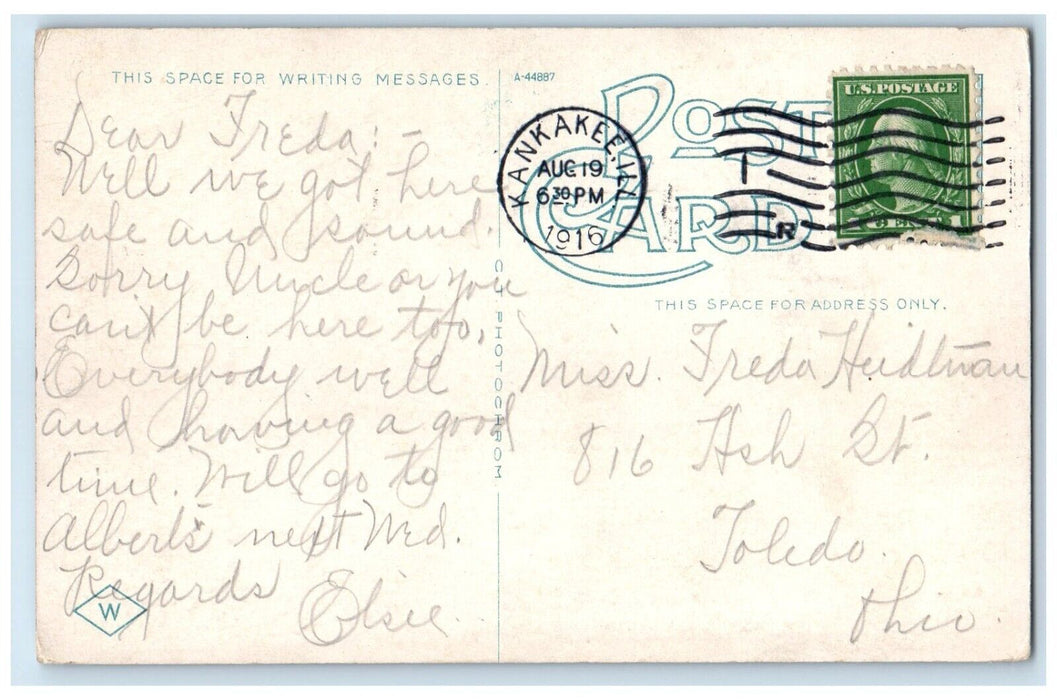 THIS SPACE FOR WRITING MESSAGES.
Dear Freda: -
Well we got here
safe and sound.
Sorry Uncle or you
can't be here too,
Everybody well
and having a good
time. Will go to
Albert's next Wed.
Regards
Elsie.
W
C.T. PHOTOCHROM
A-44887
POST CARD
KANKAKEE, ILL.
AUG 19
6 30 PM
1916
R
U.S. POSTAGE
1 CENT 1
THIS SPACE FOR ADDRESS ONLY.
Miss. Freda Heidtman
816 Ash St.
Toledo.
Ohio.